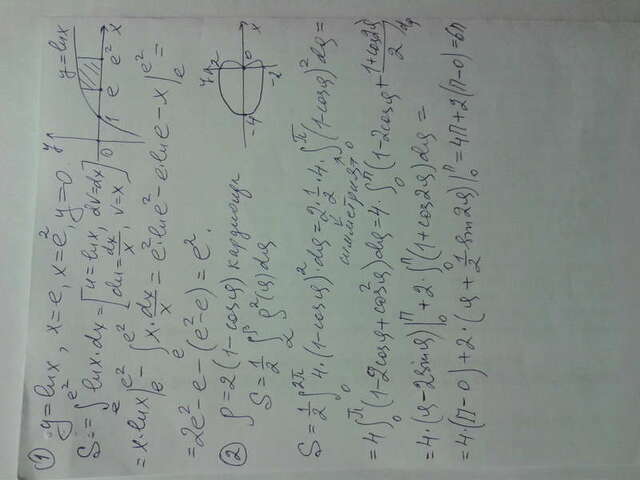 ① y = lnx, x = e, x = e², y = 0.
S = ∫ₑ^(e²) lnx·dx = [u = lnx, dv = dx; du = dx/x, v = x]
y y = lnx 0 1 e e² x
= x·lnx |ₑ^(e²) − ∫ₑ^(e²) x·dx/x = e²·lne² − e·lne − x |ₑ^(e²) =
= 2e² − e − (e² − e) = e².
② ρ = 2(1 − cosφ) кардиоида
S = 1/2 ∫ ρ²(φ)dφ
-4 0 2 -2 x
S = 1/2 ∫₀^(2π) 4·(1 − cosφ)²·dφ = 2·1/2·4·∫₀^π (1 − cosφ)² dφ =
симметрия
= 4∫₀^π (1 − 2cosφ + cos²φ)dφ = 4·∫₀^π (1 − 2cosφ + (1 + cos2φ)/2) dφ
= 4·(φ − 2sinφ) |₀^π + 2·∫₀^π (1 + cos2φ)dφ =
= 4·(π − 0) + 2·(φ + 1/2 sin2φ) |₀^π = 4π + 2(π − 0) = 6π